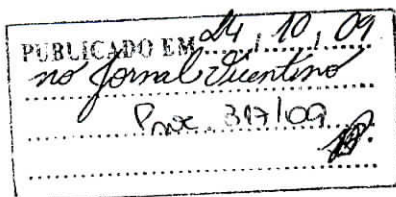 PUBLICADO EM 24, 10, 09
no Jornal Vicentino
Proc. 317/09